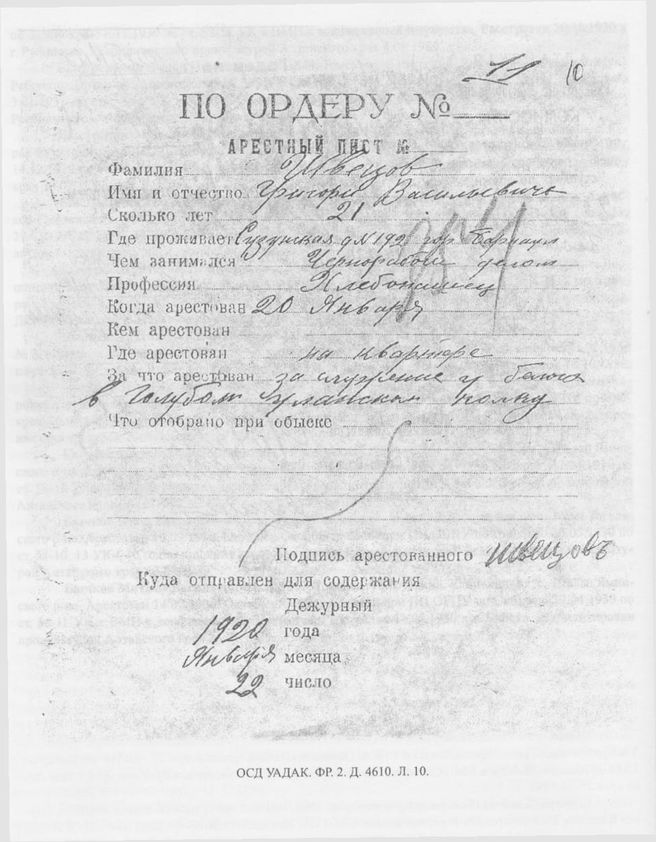 11 10
ПО ОРДЕРУ №
АРЕСТНЫЙ ЛИСТ №
Фамилия Швецов
Имя и отчество Григори Васильевичь
Сколько лет 21
Где проживает Сузунская д N 192 гор Барнаул
Чем занимался Чернорабочи делом
Профессия Хлебопашец
Когда арестован 20 Января
Кем арестован
Где арестован на квартере
За что арестован за служение у белых
в Голубом уланском полку
Что отобрано при обыске
Подпись арестованного Швецовъ
Куда отправлен для содержания
Дежурный
1920 года
Января месяца
22 число
ОСД УАДАК. ФР. 2. Д. 4610. Л. 10.